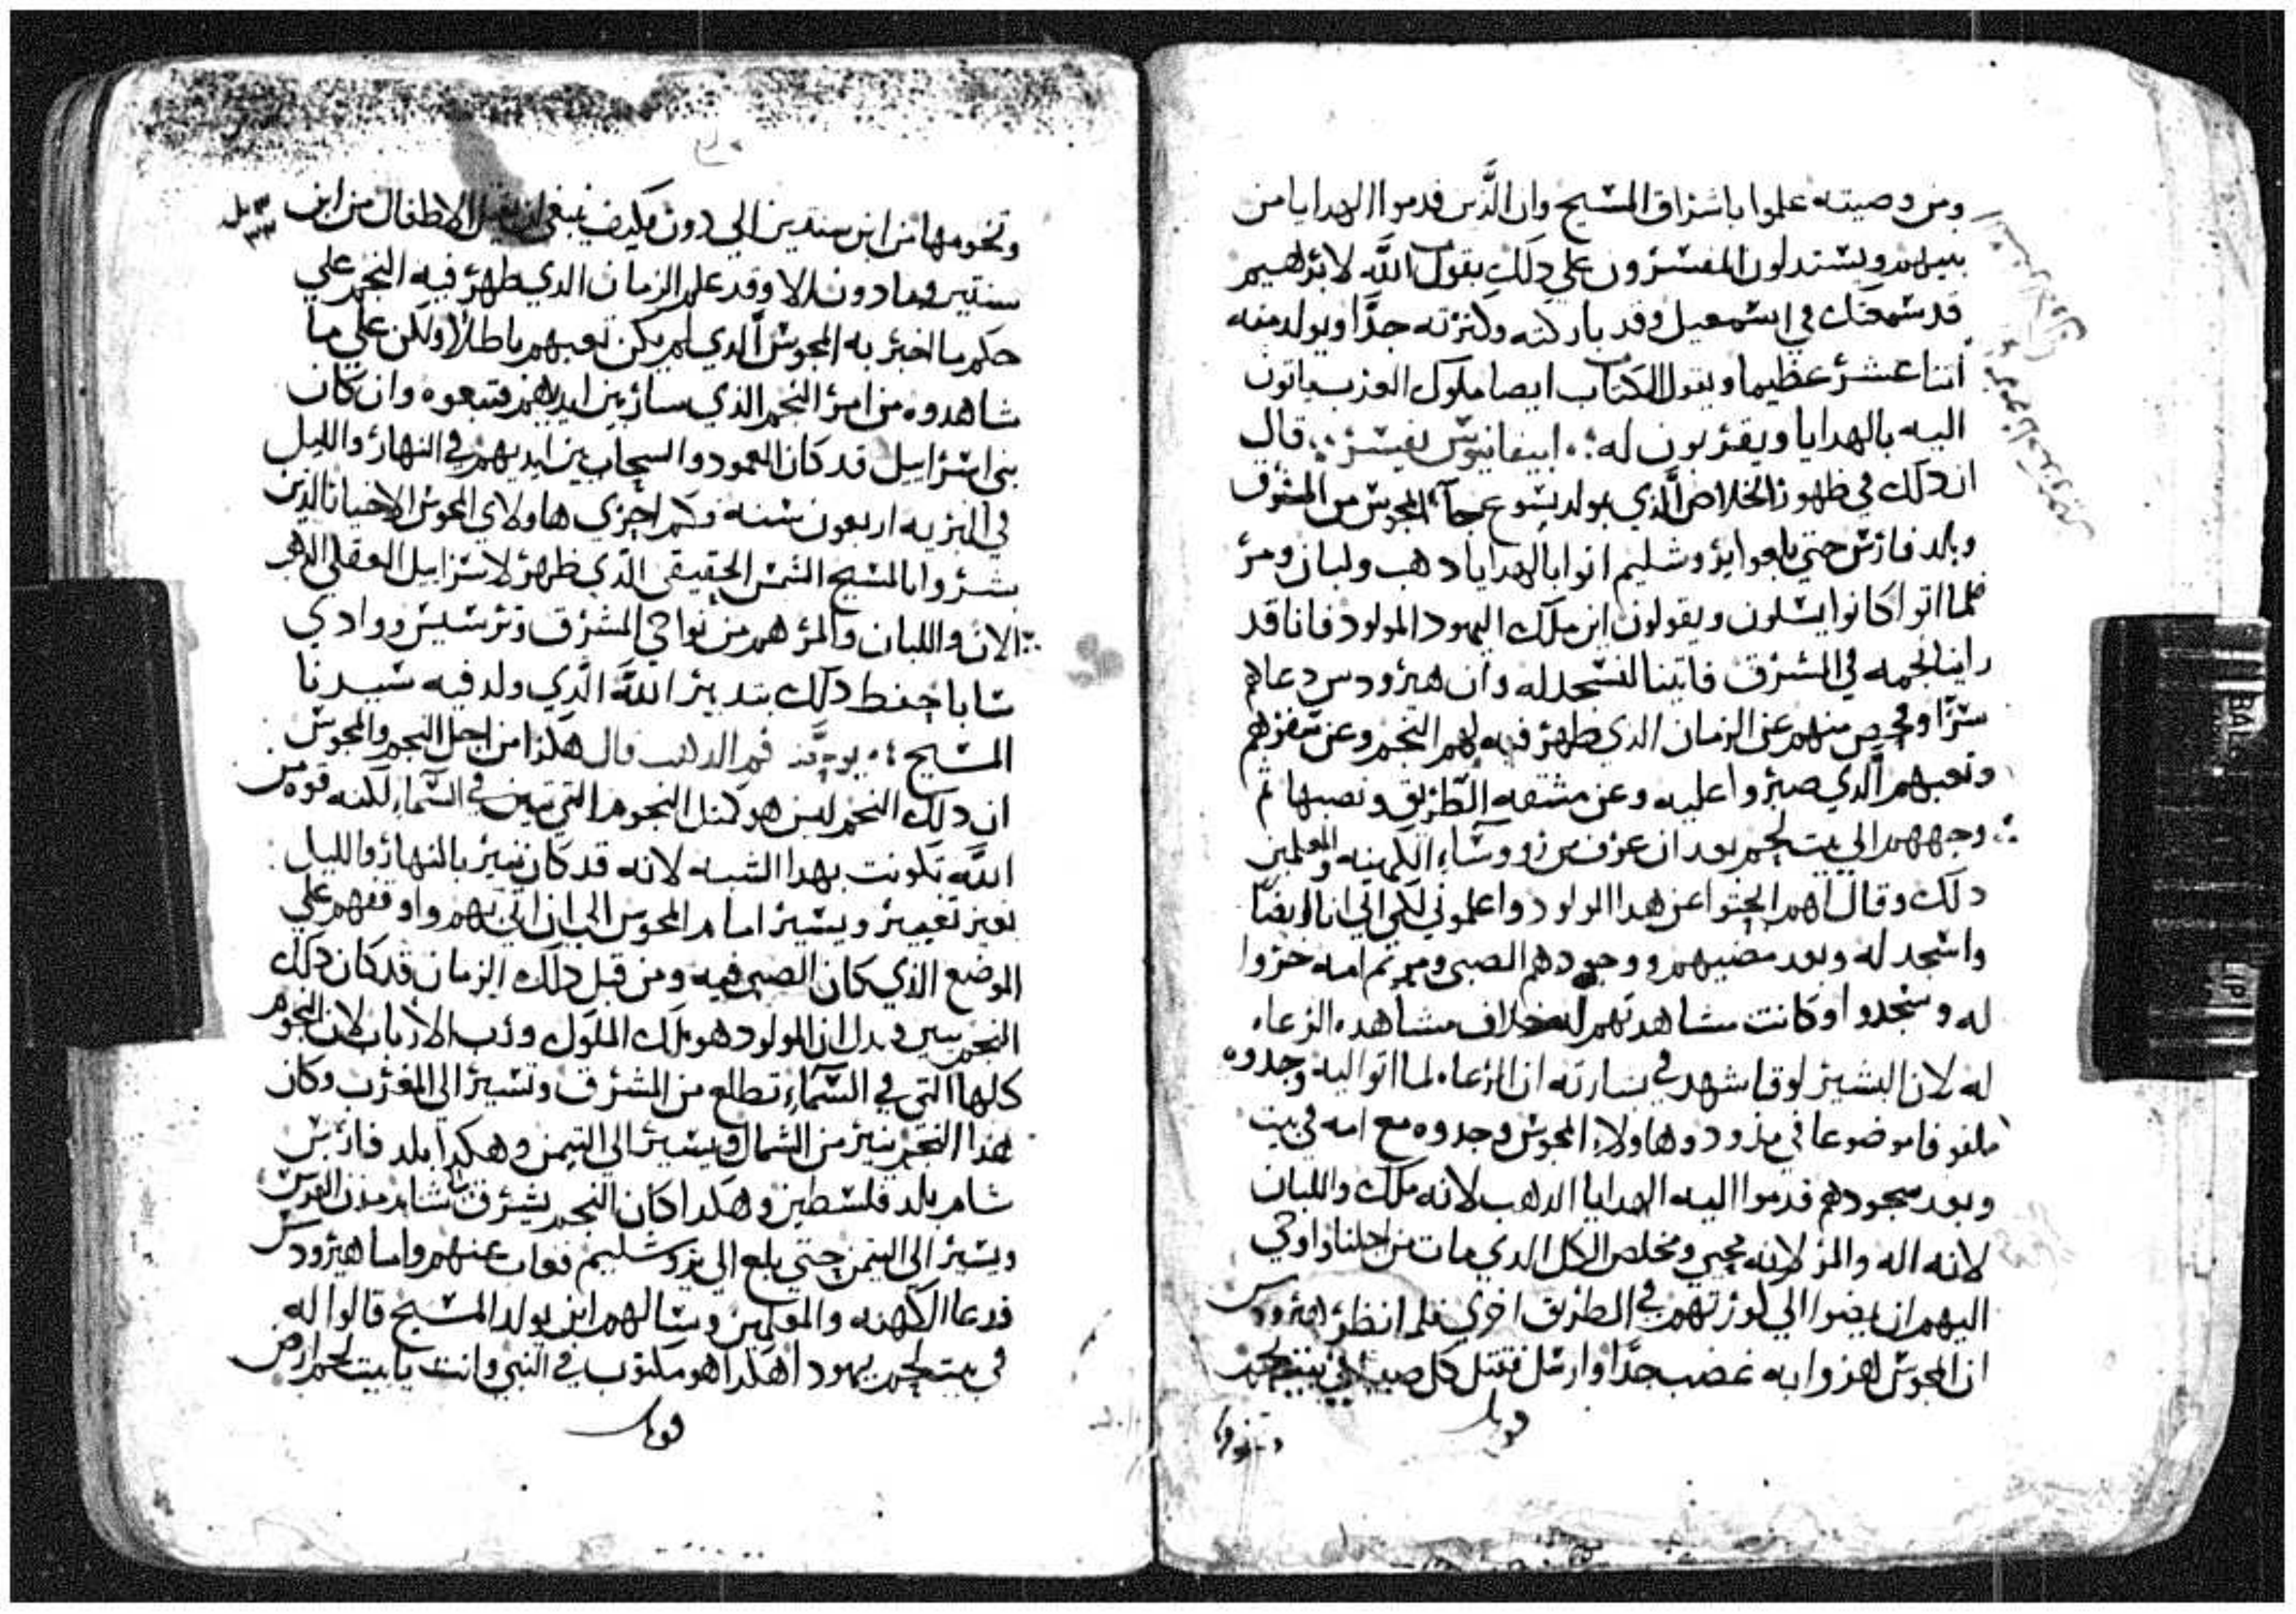 ومن وصيته علموا باشراق المسيح وان الدين قدموا الهدايا من
بينهم ويستدلون المفسرون على دلك بقول الله لابرهيم
قد سمعتك في اسمعيل وقد باركته وكترته جدا ويولد منه
اتنا عشر عظيما ويقول الكتاب ايضا ملوك العرب ياتون
اليه بالهدايا ويقربون له ابيفانيوس يفسر قال
ان دلك في ظهور الخلاص الدي يولد يسوع جآء المجوس من المشرق
وبلد فارس حتي بلغوا يروشليم اتوا بالهدايا دهب ولبان ومر
فلما اتوا كانوا يسلون ويقولون اين ملك اليهود المولود فانا قد
راينا نجمه في المشرق فاتينا لنسجد له وان هيرودس دعاهم
سرا وفحص منهم عن الزمان الدي ظهر فيه لهم النجم وعن سفرهم
وتعبهم الدي صبروا عليه وعن مشقه الطريق ونصبها تم
وجههم الي بيت لحم بعد ان عرف من رووسآء الكهنه والمعلمين
دلك وقال لهم ابحتوا عن هدا المولود واعلموني لكي اتي انا ايضا
واسجد له وبعد مضيهم ووجودهم الصبي ومريم امه خروا
له وسجدوا وكانت مشاهدتهم له خلاف مشاهده الرعاه
له لان البشير لوقا شهد في بشارته ان الرعاه لما اتوا اليه وجدوه
ملفوفا موضوعا في مدود وهاولاء المجوس وجدوه مع امه في بيت
وبعد سجودهم قدموا اليه الهدايا الدهب لانه ملك واللبان
لانه اله والمر لانه محيي ومخلص الكل الدي مات من اجلنا واوحي
اليهم ان يمضوا الي كورتهم في الطريق اخري فلما نظر هيرودس
ان المجوس هزوا به غضب جدا وارسل فقتل كل صبيان بيت لحم
وتخومها من ابن سنتين الي دون فكيف ينبغي ان يقتل الاطفال من ابن
سنتين وما دون الا وقد علم الزمان الدي ظهر فيه النجم علي
حكم ما اخبر به المجوس الدي لم يكن تعبهم باطلا ولكن علي ما
شاهدوه من امر النجم الذي سار بين ايديهم فتبعوه وان كان
بني اسراييل قد كان العمود والسحاب بين ايديهم في النهار والليل
في البريه اربعون سنه فكم احري هاولاي المجوس الاخيار الذين
بشروا بالمسيح الشمس الحقيقي الذي ظهر لاسراييل العقلي الدهب
الان واللبان والمر هم من نواحي المشرق وترسيس ووادي
سابا حفظ دلك بتدبير الله الذي ولد فيه سيدنا
المسيح يوحنا فم الدهب قال هكذا من اجل النجم والمجوس
ان دلك النجم ليس هو كمتل النجوم التي تبين في السماء لكنه قوه من
الله تكونت بهدا الشبه لانه قد كان ينير بالنهار والليل
بغير تغيير ويسير امام المجوس الي ان اتي بهم واوقفهم علي
الموضع الذي كان الصبي فيه ومن قبل دلك الزمان قد كان دلك
النجم يبين ويدل ان المولود هو ملك الملوك ورب الارباب لان النجوم
كلها التي في السماء تطلع من المشرق وتسير الي المغرب وكان
هذا النجم ينير من الشمال ويسير الي التيمن وهكدا بلد فارس
شام بلد فلسطين وهكدا كان النجم يشرق من شام مدن الفرس
ويسير الي التيمن حتي بلغ الي يروشليم فغاب عنهم واما هيرودس
فدعا الكهنه والمعلمين وسالهم اين يولد المسيح قالوا له
في بيت لحم يهودا هكدا هو مكتوب في النبي وانت يا بيت لحم ارض